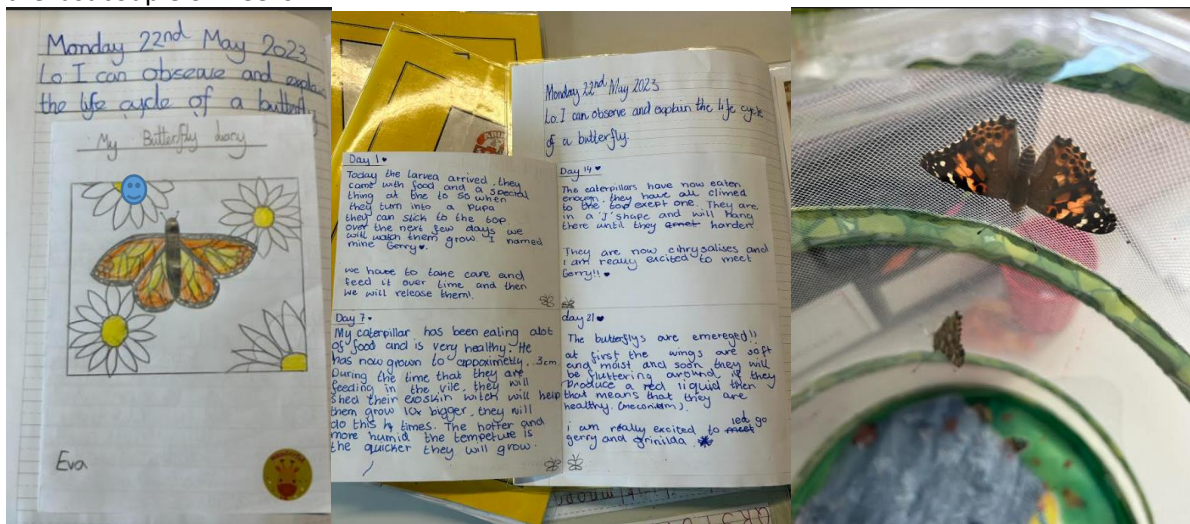 Monday 22nd May 2023
Lo I can observe and explain
the life cycle of a butterfly
My Butterfly diary
Eva
Monday 22nd May 2023
Lo: I can observe and explain the life cycle
of a butterfly.
Day 1
Today the larvea arrived, they
came with food and a special
thing at the to so when
they turn into a pupa
they can stick to the top
over the next few days we
will watch them grow. I named
mine Gerry.
we have to take care and
feed it over time and then
we will release them!.
Day 7
My caterpillar has been eating alot
of food and is very healthy. He
has now grown to appoximetly. 3cm
During the time that they are
feeding in the vile, they will
shed their exoskin witch will help
them grow 10x bigger, they will
do this 4 times. The hotter and
more humid the tempeture is
the quicker they will grow.
Day 14
The caterpillars have now eaten
enough, they have all climed
to the top exept one. They are
in a 'J' shape and will hang
there until they harden
They are now chrysalises and
I am really excited to meet
Gerry!!
day 21
The butterflys are emereged!!
at first the wings are soft
and moist and soon they will
be fluttering around, if they
produce a red liquid then
that means that they are
healthy. (meconium).
i am really excited to let go
gerry and grinilda.